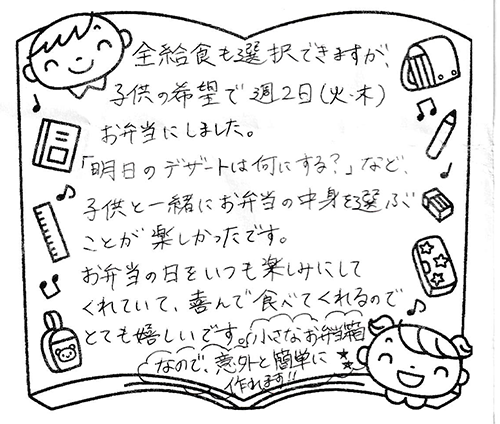 全給食も選択できますが、
子供の希望で週2日(火・木)
お弁当にしました。
「明日のデザートは何にする?」など、
子供と一緒にお弁当の中身を選ぶ
ことが楽しかったです。
お弁当の日をいつも楽しみにして
くれていて、喜んで食べてくれるので
とても嬉しいです。小さなお弁当箱
なので、意外と簡単に
作れます!!